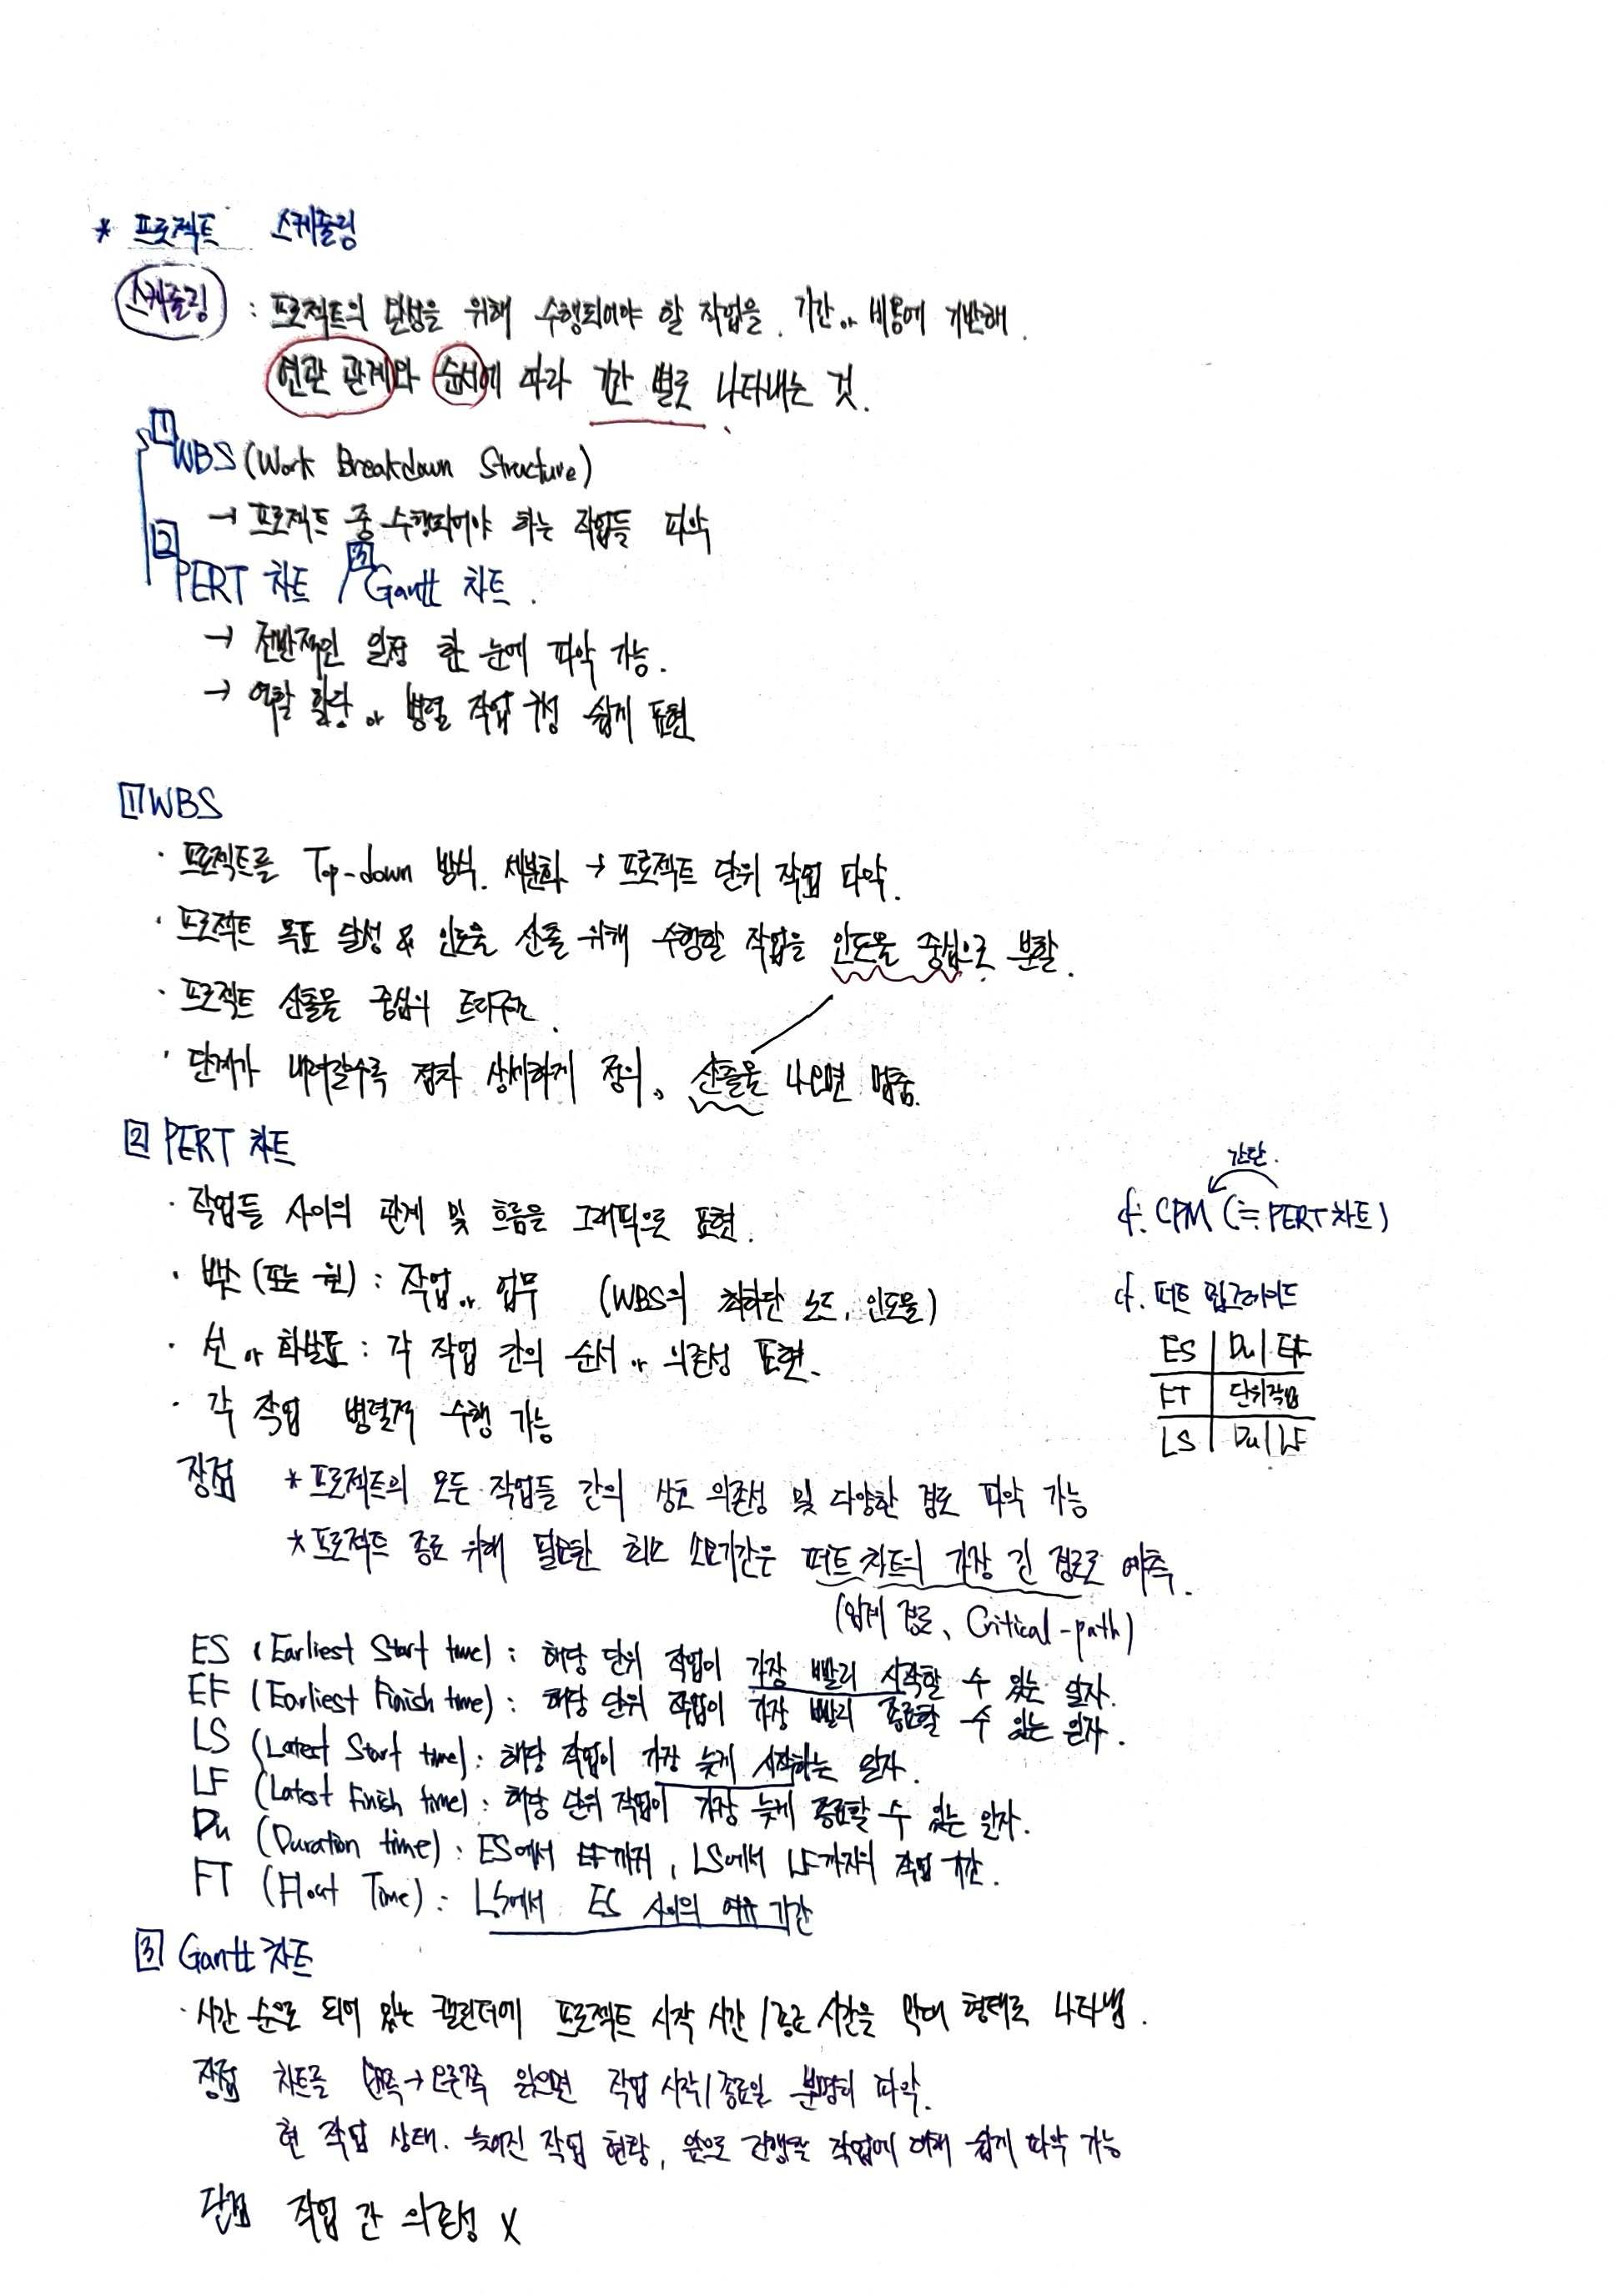 * 프로젝트 스케줄링
스케줄링 : 프로젝트의 달성을 위해 수행되어야 할 작업을, 기간 or 비용에 기반해
연관 관계와 순서에 따라 기간 별로 나타내는 것.
1 WBS (Work Breakdown Structure)
→ 프로젝트 중 수행되어야 하는 작업들 파악
2 PERT 차트 / 3 Gantt 차트.
→ 전반적인 일정 한 눈에 파악 가능.
→ 역할 할당 or 병렬 작업 구성 쉽게 표현
1 WBS
· 프로젝트를 Top-down 방식. 세분화 → 프로젝트 단위 작업 파악.
· 프로젝트 목표 달성 & 인도물 산출 위해 수행할 작업을 인도물 중심으로 분할.
· 프로젝트 산출물 중심의 트리구조.
· 단계가 내려갈수록 점차 상세하게 정의, 산출물 나오면 멈춤.
2 PERT 차트
간단.
· 작업들 사이의 관계 및 흐름을 그래픽으로 표현.
cf. CPM (≒ PERT 차트)
· 박스 (또는 원) : 작업 or 업무 (WBS의 최하단 노드, 인도물)
cf. 퍼트 업그레이드
· 선 or 화살표 : 각 작업 간의 순서 or 의존성 표현.
ES | Du | EF
FT | 단위작업
· 각 작업 병렬적 수행 가능
LS | Du | LF
장점 * 프로젝트의 모든 작업들 간의 상호 의존성 및 다양한 경로 파악 가능
* 프로젝트 종료 위해 필요한 최소 소요기간은 퍼트 차트의 가장 긴 경로로 예측.
(임계 경로, Critical-path)
ES (Earliest Start time) : 해당 단위 작업이 가장 빨리 시작할 수 있는 일자.
EF (Earliest Finish time) : 해당 단위 작업이 가장 빨리 종료할 수 있는 일자.
LS (Latest Start time) : 해당 작업이 가장 늦게 시작하는 일자.
LF (Latest Finish time) : 해당 단위 작업이 가장 늦게 종료할 수 있는 일자.
Du (Duration time) : ES에서 EF까지, LS에서 LF까지의 작업 기간.
FT (Float Time) : LS에서 ES 사이의 여유 기간
3 Gantt 차트
· 시간 순으로 되어 있는 캘린더에 프로젝트 시작 시간 / 종료 시간을 막대 형태로 나타냄.
장점 차트를 왼쪽→오른쪽 읽으면 작업 시작/종료일 분명히 파악.
현 작업 상태. 늦어진 작업 현황, 앞으로 진행할 작업에 대해 쉽게 파악 가능
단점 작업 간 의존성 X